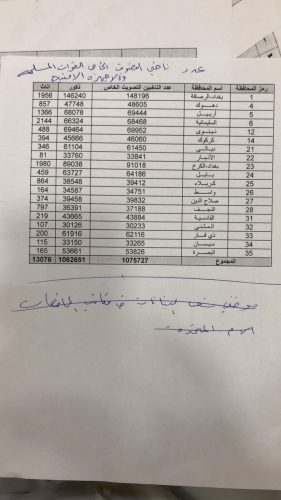 عدد ناخبي التصويت الخاص القوات المسلحة
والاجهزة الامنية
رمز المحافظة اسم المحافظة عدد الناخبين التصويت الخاص ذكور اناث
1 بغداد-الرصافة 148196 146240 1956
4 دهوك 48605 47748 857
5 أربيل 69444 68078 1366
6 السليمانية 68468 66324 2144
12 نينوى 69952 69464 488
14 كركوك 46060 45666 394
21 ديالى 61450 61104 346
22 الأنبار 33841 33760 81
23 بغداد-الكرخ 91018 89038 1980
24 بابل 64186 63727 459
25 كربلاء 39412 38548 864
26 واسط 34751 34587 164
27 صلاح الدين 39832 39458 374
28 النجف 37188 36391 797
31 القادسية 43884 43665 219
32 المثنى 30233 30126 107
33 ذي قار 62116 61916 200
34 ميسان 33265 33150 115
35 البصرة 53826 53661 165
المجموع 1075727 1062651 13076
البيانات في مكاتب
الامم المتحدة